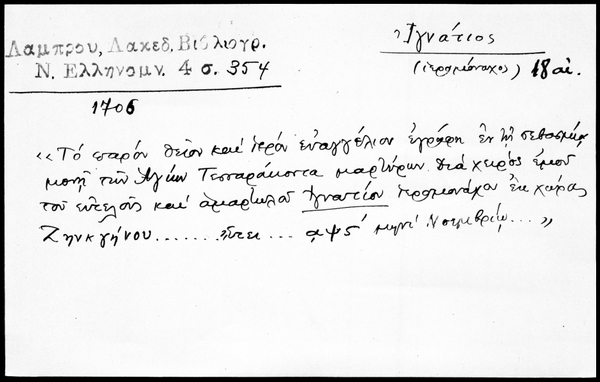 Λαμπρου, Λακεδ. Βιβλιογρ.
Ν. Ελληνομν. 4 σ. 354
Ἰγνάτιος
(ἱερομόναχος) 18 αἰ.
1706
«Τό παρόν θεῖον καί ἱερόν εὐαγγέλιον ἐγράφη ἐν τῇ σεβασμίᾳ
μονῇ τῶν Ἁγίων Τεσσαράκοντα μαρτύρων διά χειρός ἐμοῦ
τοῦ εὐτελοῦς καί ἁμαρτωλοῦ Ἰγνατίου ἱερομονάχου ἐκ χώρας
Ζηνκγήνου....... ἔτει... αψς΄ μηνί Νοεμβρίῳ...»